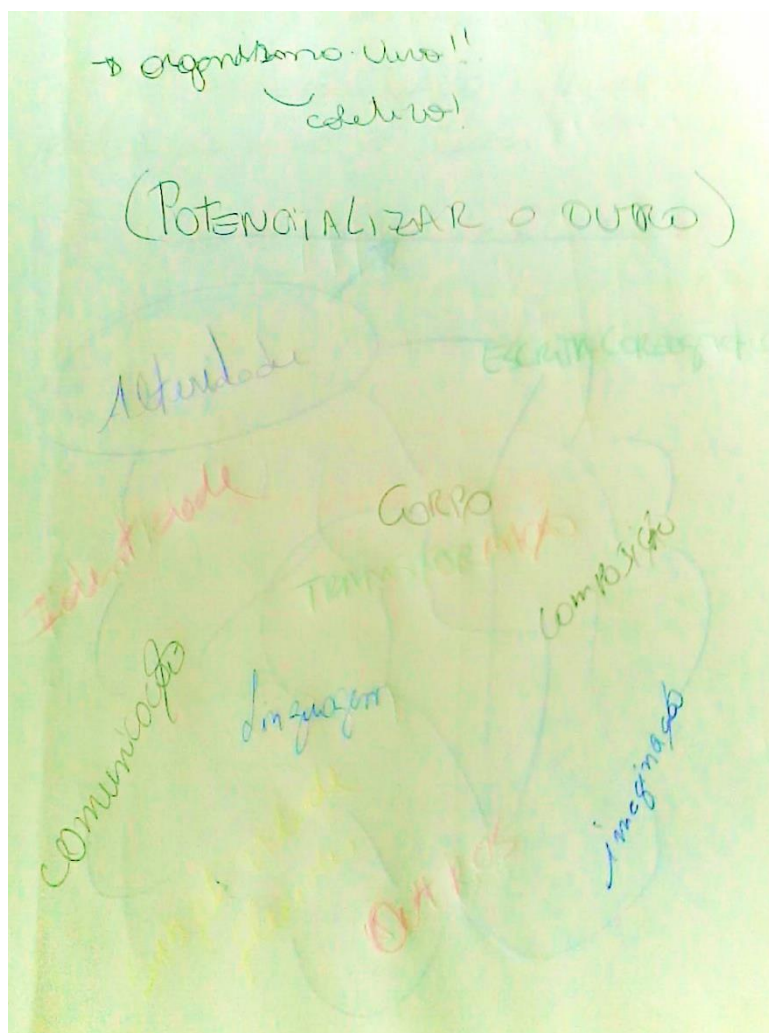 → organismo vivo!!
coletivo!
(POTENCIALIZAR O OUTRO)
Alteridade
ESCRITA COREOGRÁFICA
Identidade
CORPO
TRANSFORMAÇÃO
COMPOSIÇÃO
Comunicação
Linguagem
imaginação
OUTROS